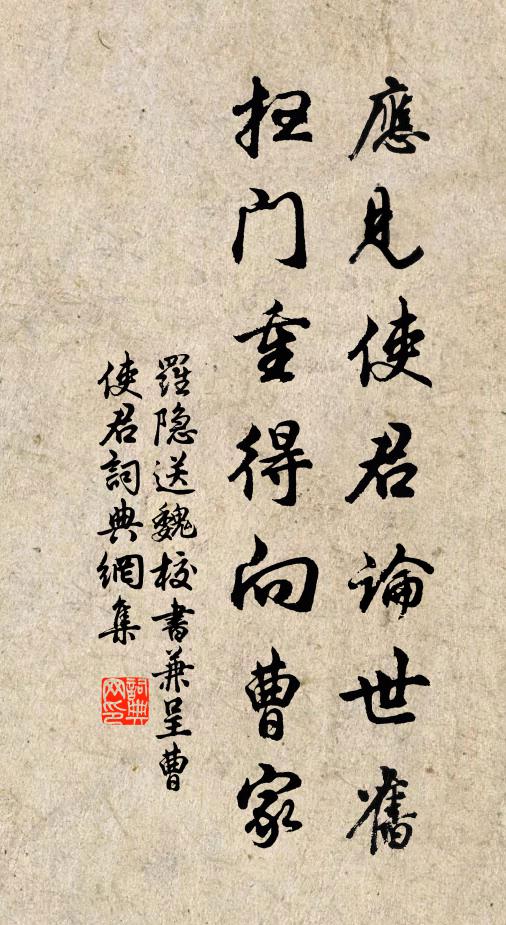 應見使君論世舊
扫门重得向曹家
羅隐送魏校書兼呈曹
使君詞典網集
詞典
网印